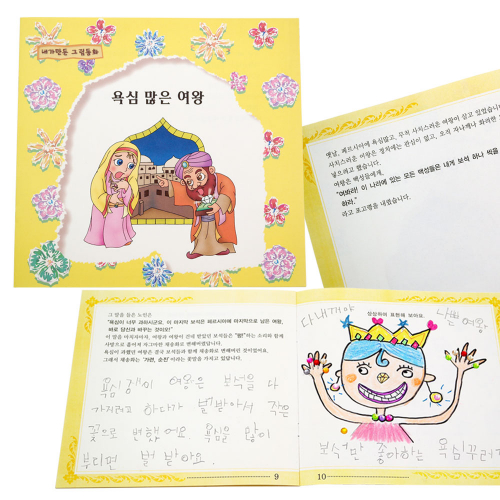 내가만든 그림동화
욕심 많은 여왕
옛날, 페르시아에 욕심많고, 무척 사치스러운 여왕이 살고 있었습니다.
사치스러운 여왕은 정치에는 관심이 없고, 오직 자나깨나 화려한
넣으려고 했습니다.
여왕은 백성들에게,
"여봐라! 이 나라에 있는 모든 백성들은 내게 보석 하나 씩을
하라."
라고 포고령을 내렸습니다.
그 말을 들은 노인은
"욕심이 너무 과하시군요. 이 마지막 보석은 페르시아에 마지막으로 남은 여왕,
바로 당신과 바꾸는 것이오!"
이 말을 마치자마자, 여왕과 여왕이 긴데 받았던 보석들은 "펑!"하는 소리와 함께
사방으로 흩어져 자그마한 채송화로 변해버렸답니다.
욕심이 과했던 여왕은 결국 보석들과 함께 채송화로 변해버린 것이었어요.
그래서 채송화는 '가련, 순진' 이라는 꽃말을 가지고 있답니다.
욕심쟁이 여왕은 보석을 다
가지려고 하다가 벌받아서 작은
꽃으로 변했어요. 욕심을 많이
부리면 벌 받아요.
9
상상하여 표현해 보아요.
다 내꺼야
나쁜 여왕
보석만 좋아하는 욕심꾸러기
10